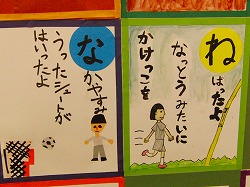 な
かやすみ
うったシュートが
はいったよ
ね
ばったよ
なっとうみたいに
かけっこを